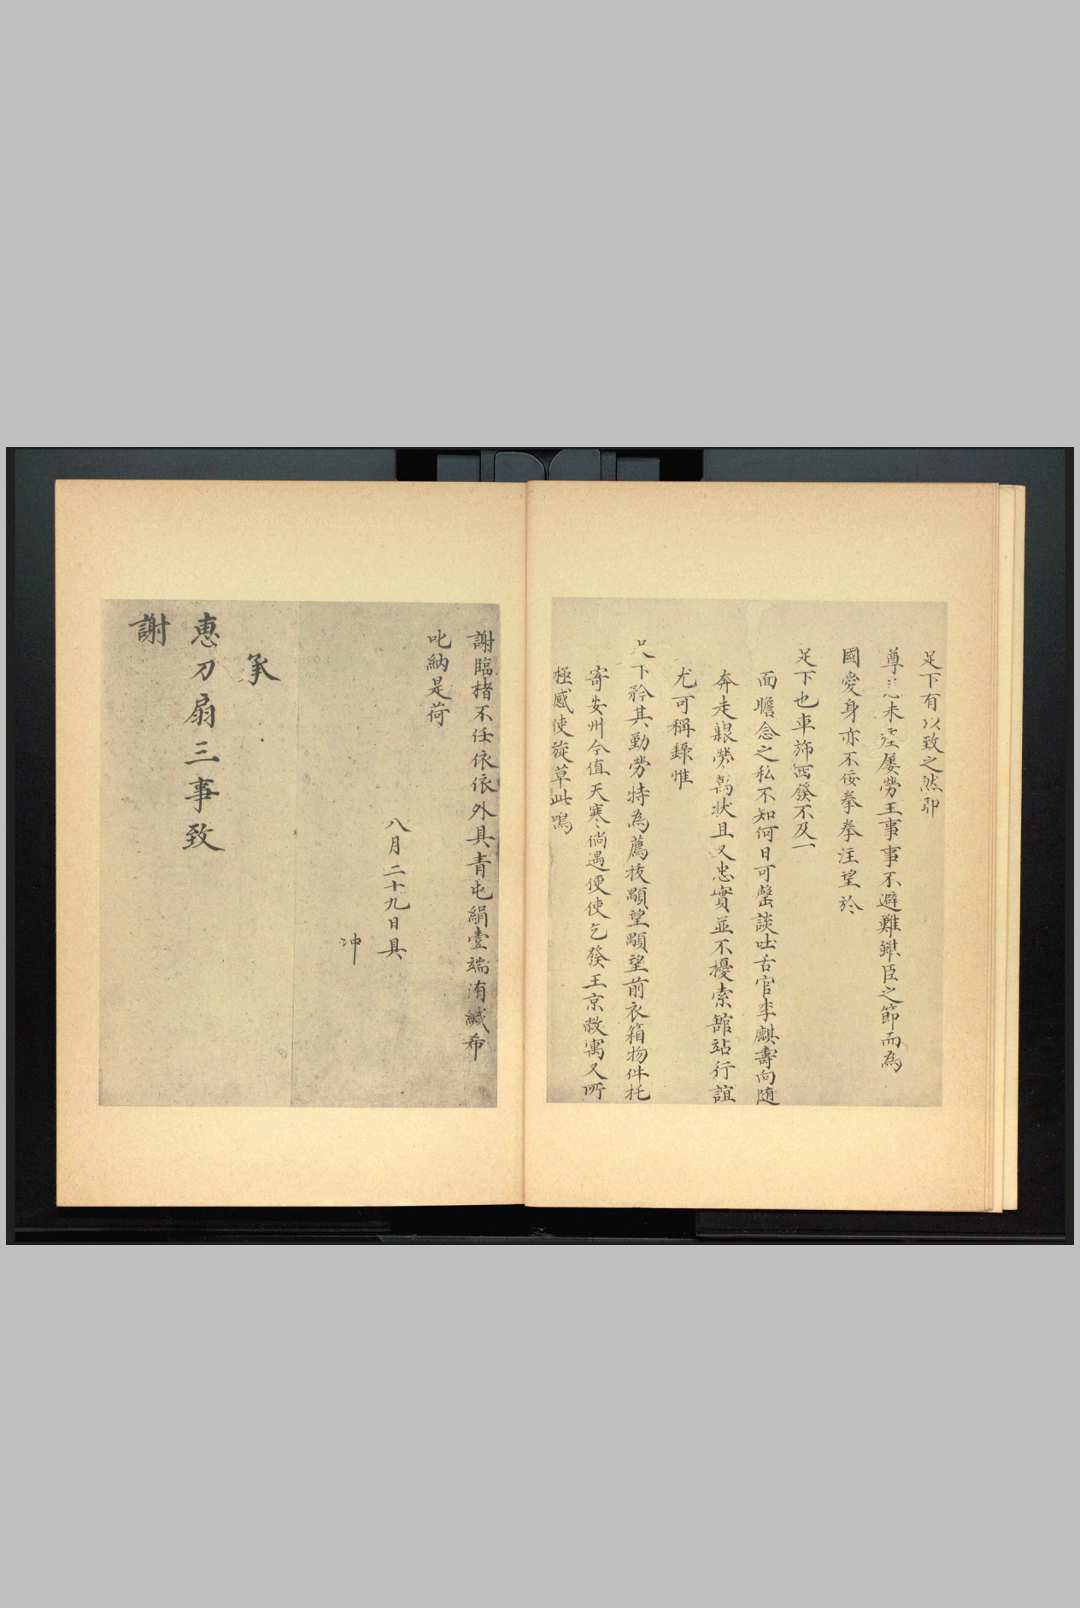 足下有以致之然耶
尊兄未
屡勞王事事不避難
臣之節而為
國愛身亦不佞拳拳注望於
足下也車旆西發不及一
面瞻念之私不知何日可罄談吐舌官李麒壽向随
奔走艱勞萬狀且又忠實並不擾索舘站行誼
尤可稱錄惟
足下矜其勤勞特為薦拔顒望顒望前衣箱物件托
寄安州今值天寒倘遇便使乞發王京敝寓又所
極感使旋草此鳴
謝臨楮不任依依外具青屯絹壹端侑緘希
叱納是荷
八月二十九日具
冲
承
惠刀扇三事致
謝